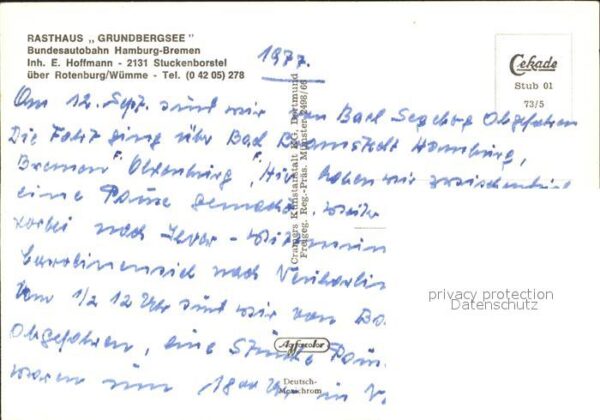 RASTHAUS „GRUNDBERGSEE"
Bundesautobahn Hamburg-Bremen
Inh. E. Hoffmann - 2131 Stuckenborstel
über Rotenburg/Wümme - Tel. (0 42 05) 278
1977.
Cekade
Stub 01
73/5
Am 12. Sept. sind wir von Bad Segeberg Abgefahren
Die Fahrt ging über Bad Bramstedt Hamburg,
Bremen Oldenburg, Hier haben wir zwischendurch
eine Pause gemacht. weiter
vorbei nach Jever - Wittmun
Carolinensiel nach Neuharlin
Um 1/2 12 Uhr sind wir von Ba
Abgefahren, eine Stunde Paus
waren um 18 00 Uhr in N.
Cramers Kunstanstalt KG. Dortmund
Freigeg. Reg.-Präs. Münster 2498/66
Agfacolor
Deutsch-
Mexichrom
privacy protection
Datenschutz